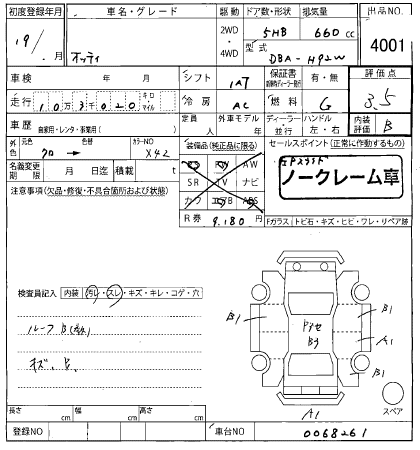 初度登録年月 車名・グレード 駆動 ドア数・形状 排気量 出品NO.
19/ 月 オッティ 2WD・4WD 5HB 660 cc 4001
型式 DBA-H92W
車検 年 月 シフト IAT 保証書 有・無 評価点
走行 10万3千020 キロ マイル 冷房 AC 燃料 G 3.5
車歴 自家用・レンタ・事業用( ) 定員 人 外車モデル 年 ディーラー・並行 ハンドル 左・右 内装評価 B
外色 元色 クロ → 色替 カラーNO X42 装備品(純正品に限る) セールスポイント(正常に作動するもの)
名義変更期限 月 日迄 積載 t SR TV ナビ ノークレーム車
注意事項(欠品・修復・不具合箇所及び状態) カワ エアB ABS
R券 9.180 円 Fガラス トビ石・キズ・ヒビ・ワレ・リペア跡
検査員記入 内装 汚レ・スレ・キズ・キレ・コゲ・穴
B1
B1
A1
B1
A1
スペア
長さ cm 幅 cm 高さ cm
登録NO 車台NO 0068261